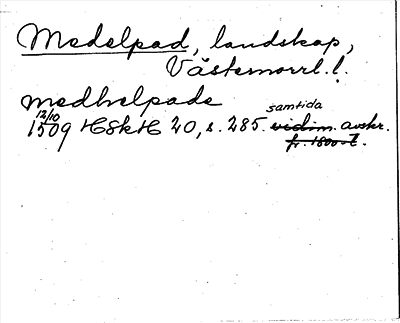 Medelpad, landskap,
Västernorrl. l.
medhelpade
12/10 samtida
1509 HSkH 20, s. 285. vidim. avskr.
fr. 1800-t.